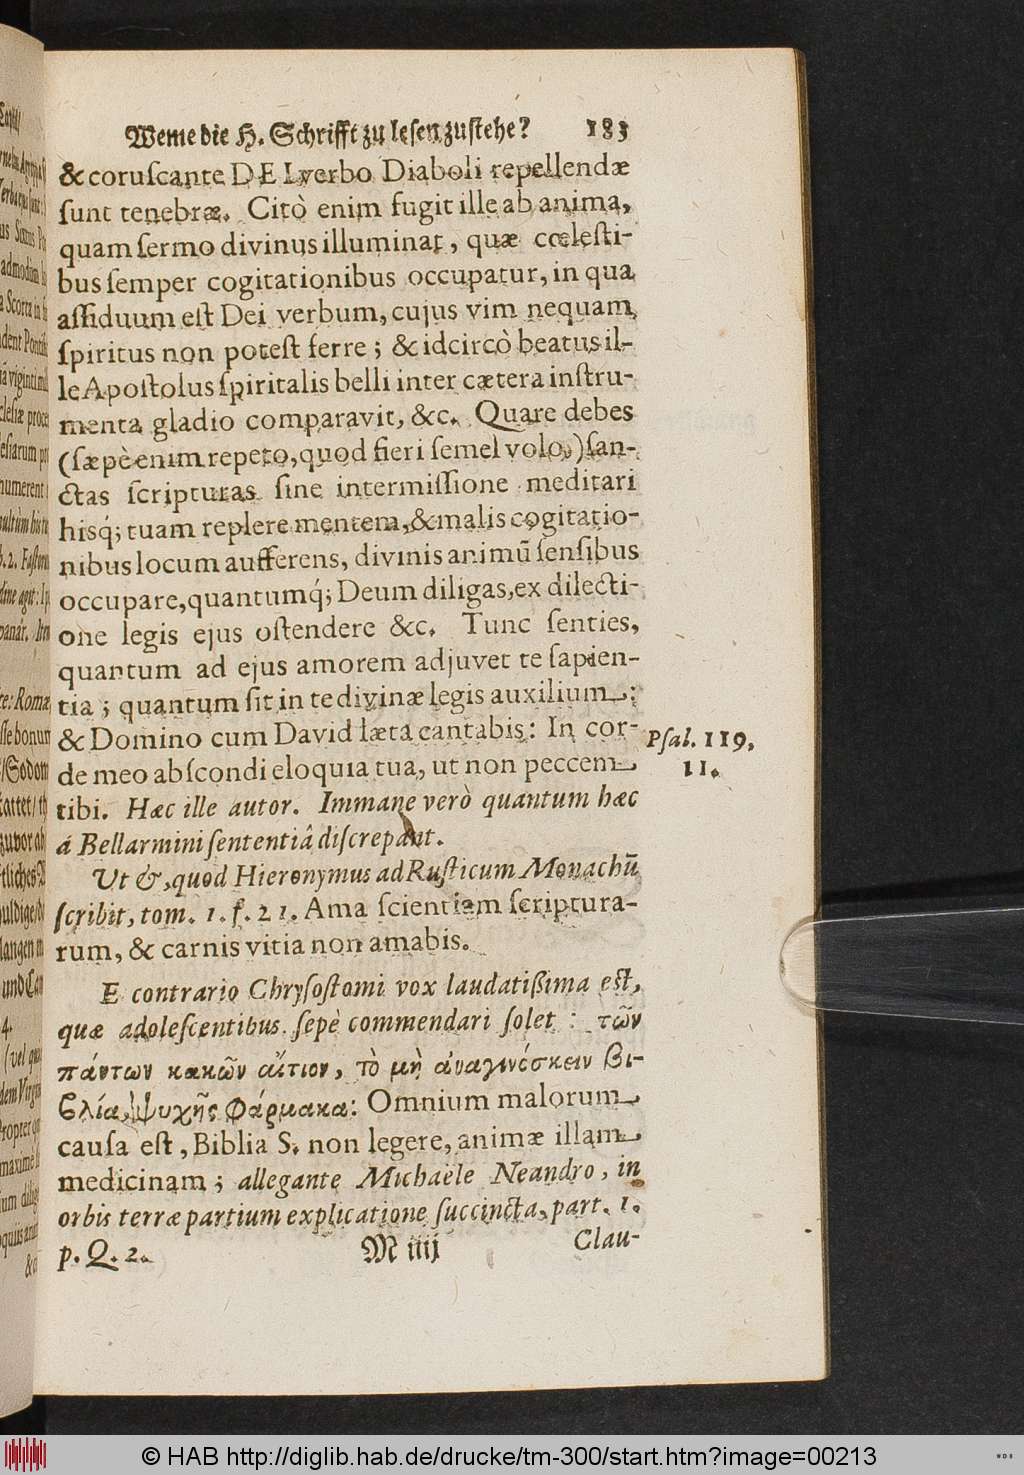 Weme die H. Schrifft zu lesen zustehe? 183
& coruſcante DEI verbo Diaboli repellendæ
ſunt tenebræ. Citò enim fugit ille ab anima,
quam ſermo divinus illuminat, quæ cœleſti-
bus ſemper cogitationibus occupatur, in qua
aſſiduum eſt Dei verbum, cujus vim nequam
ſpiritus non poteſt ferre; & idcircò beatus il-
le Apoſtolus ſpiritalis belli inter cætera inſtru-
menta gladio comparavit, &c. Quare debes
(ſæpè enim repeto, quod fieri ſemel volo,) ſan-
ctas ſcripturas ſine intermiſſione meditari
hisq́; tuam replere mentem, & malis cogitatio-
nibus locum aufferens, divinis animū ſenſibus
occupare, quantumq́; Deum diligas, ex dilecti-
one legis ejus oſtendere &c. Tunc ſenties,
quantum ad ejus amorem adjuvet te ſapien-
tia; quantum ſit in te divinæ legis auxilium;
& Domino cum David læta cantabis: In cor-
de meo abſcondi eloquia tua, ut non peccem
tibi. Hæc ille autor. Immane verò quantum hæc
á Bellarmini ſententiâ diſcrepant.
Pſal. 119,
11.
Ut &, quod Hieronymus ad Ruſticum Monachū
ſcribit, tom. 1. f. 21. Ama ſcientiam ſcriptura-
rum, & carnis vitia non amabis.
E contrario Chryſoſtomi vox laudatißima eſt,
quæ adoleſcentibus ſepè commendari ſolet: τῶν
πάντων κακῶν αἴτιον, τὸ μὴ ἀναγινόσκειν βι-
βλία, ψυχῆς φάρμακα: Omnium malorum
cauſa eſt, Biblia S. non legere, animæ illam
medicinam; allegante Michaële Neandro, in
orbis terræ partium explicatione ſuccincta, part. 1.
p. Q. 2.
M iiij
Clau-
© HAB http://diglib.hab.de/drucke/tm-300/start.htm?image=00213